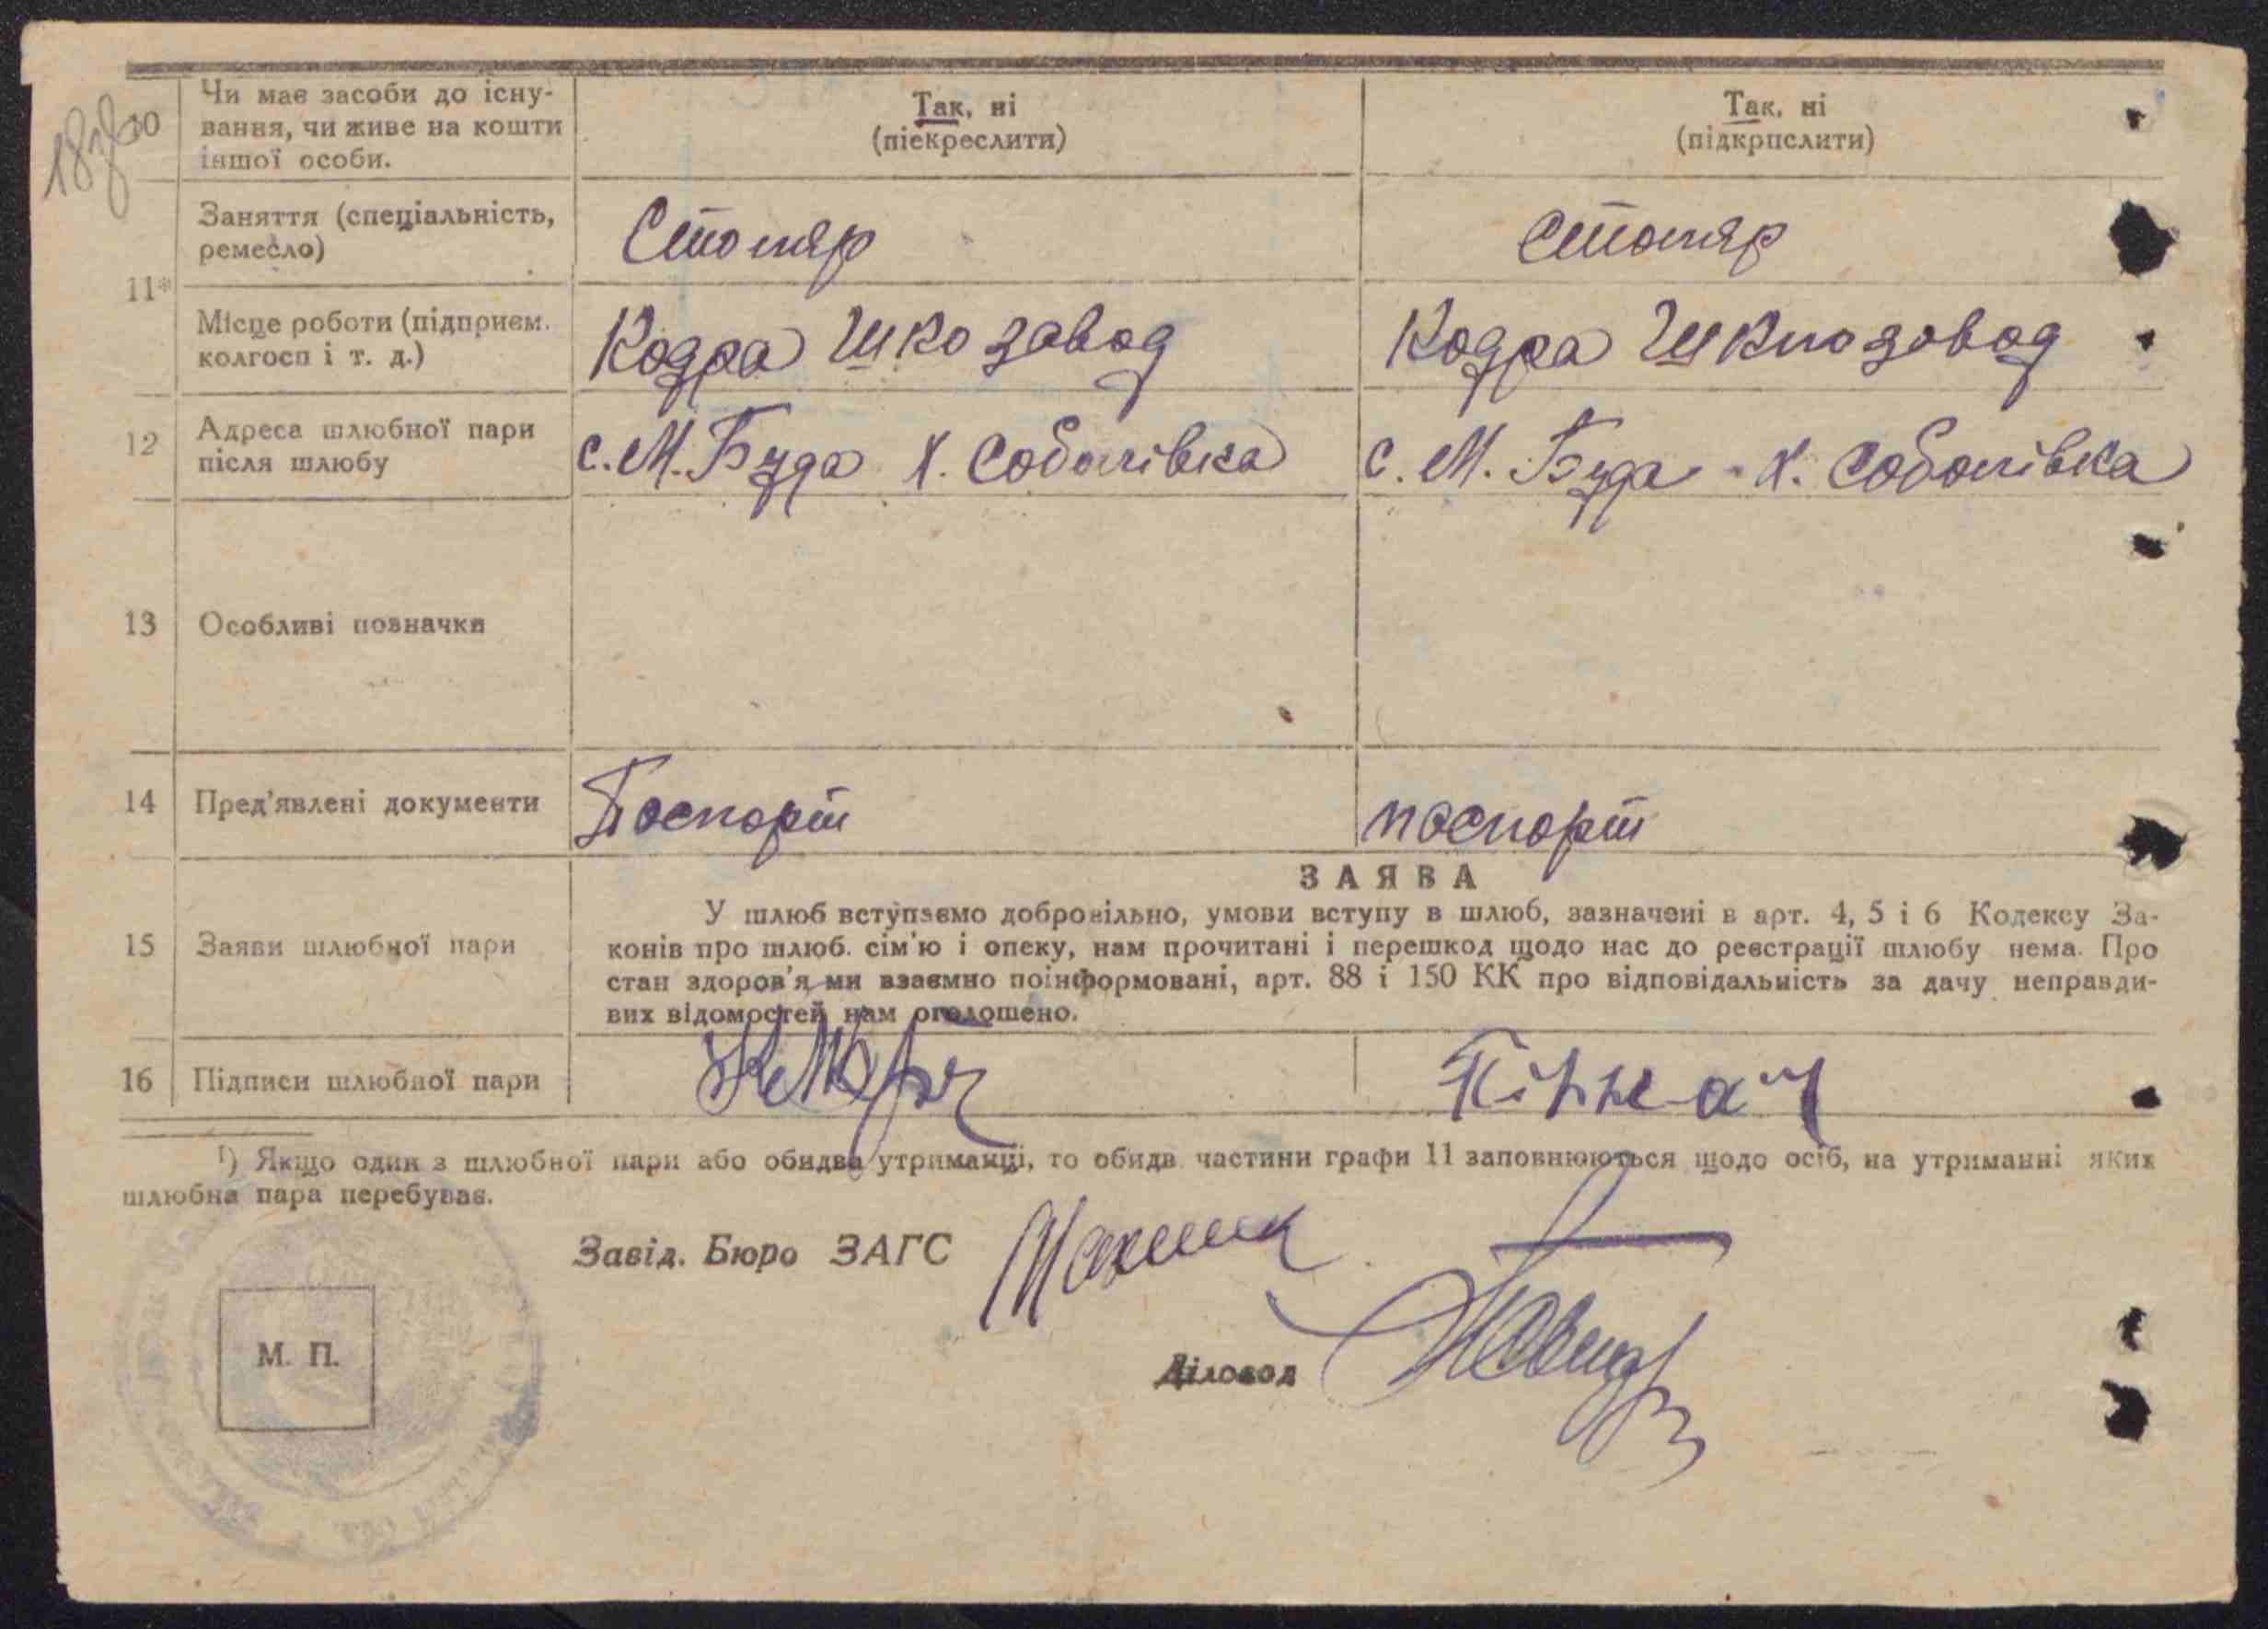 10 Чи має засоби до існу-
вання, чи живе на кошти
іншої особи.
Так, ні
(піекреслити)
Так, ні
(підкрпслити)
11*
Заняття (спеціальність,
ремесло)
Столяр
Столяр
Місце роботи (підприєм.
колгосп і т. д.)
Кодра Шкозавод
Кодра Шклозавод
12 Адреса шлюбної пари
після шлюбу
с. М. Буда х. Соболівка
с. М. Буда х. Соболівка
13 Особливі позначки
14 Пред'явлені документи
Паспорт
паспорт
15 Заяви шлюбної пари
ЗАЯВА
У шлюб вступаємо добровільно, умови вступу в шлюб, зазначені в арт. 4, 5 і 6 Кодексу За-
конів про шлюб. сім'ю і опеку, нам прочитані і перешкод щодо нас до реєстрації шлюбу нема. Про
стан здоров'я ми взаємно поінформовані, арт. 88 і 150 КК про відповідальність за дачу неправди-
вих відомостей нам оголошено.
16 Підписи шлюбної пари
1) Якщо один з шлюбної пари або обидва утриманці, то обидв частини графи 11 заповнюються щодо осіб, на утриманні яких
шлюбна пара перебуває.
Завід. Бюро ЗАГС
М. П.
Діловод